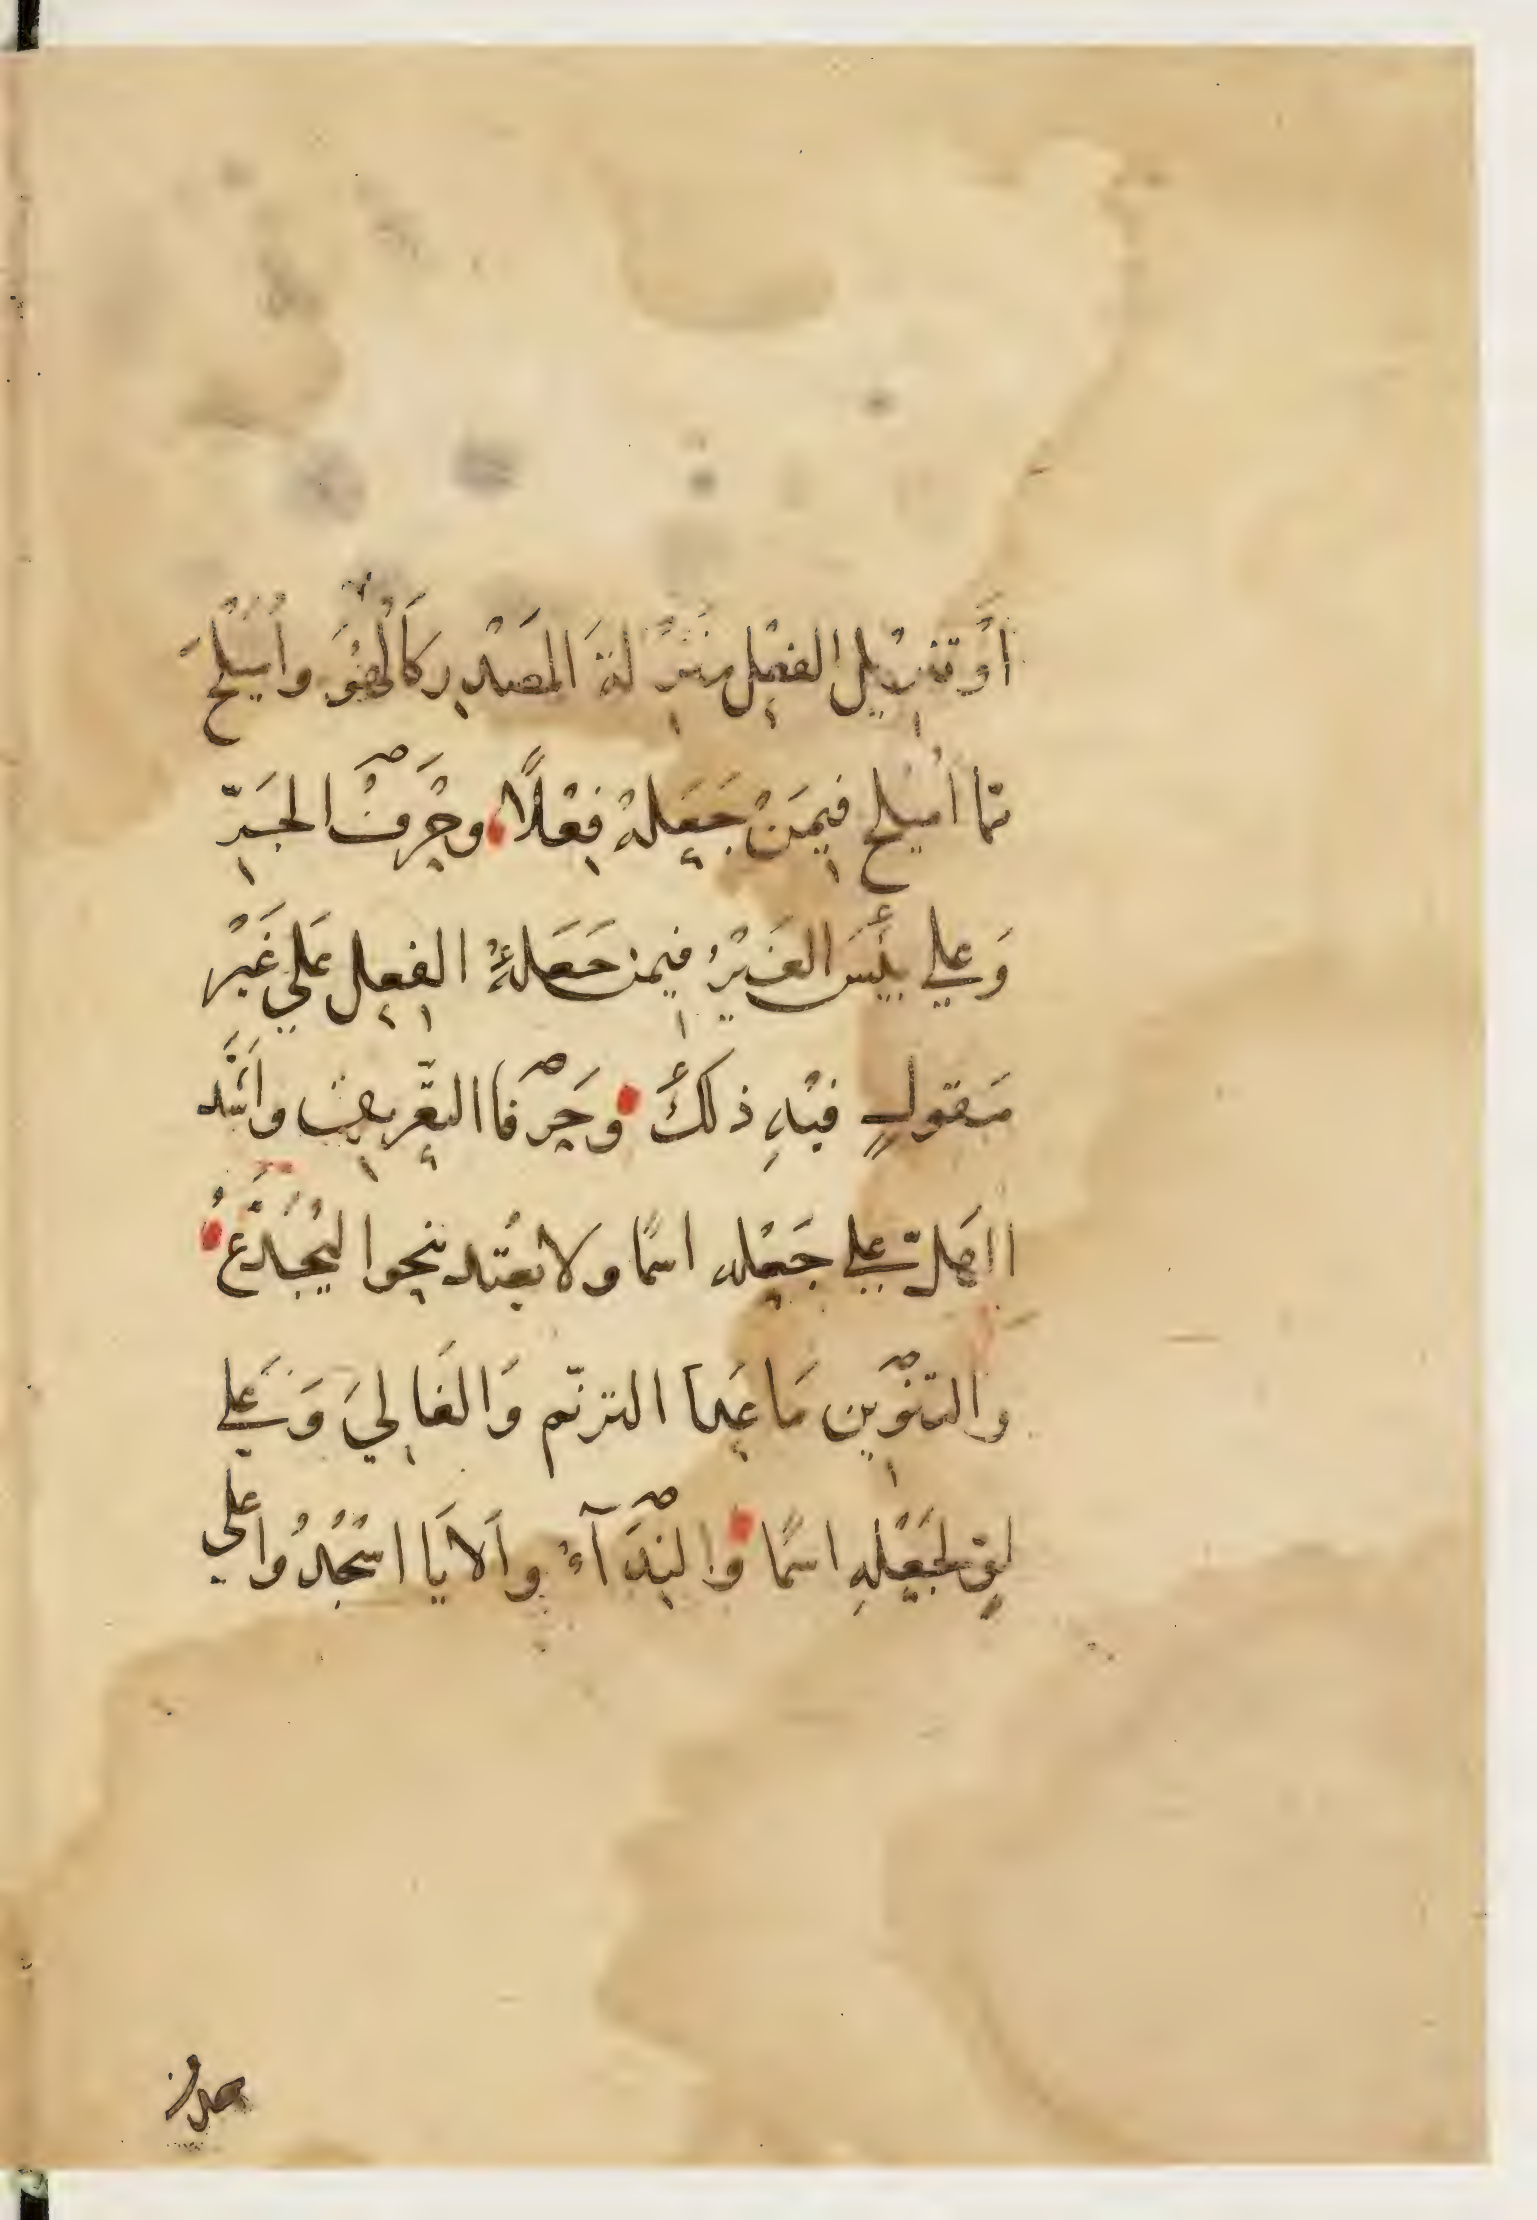 أو تنزيل الفعل منزلة المصدر كالهُو وأُمَيْلِحَ
مما أميلح فيمَنْ جَعَلهُ فِعْلًا وحَرفُ الجَرّ
وَعلي بئسَ العَيْرُ فيمن جَعَلهُ الفِعل عَلي غَيْر
مَقولٍ فيْهِ ذلكَ وحَرْفا التعْرِيف وانَّه
االهلّ علي جَعْلِه اسمًا ولا يعْتد بنحوا ليُجدَّعُ
والتنْوين مَا عَدا الترنّم وَالغَالِيَ وَعَلي
ليتٍ لجَعْلِهِ اسمًا والنِّدَآءُ وألايَا اسْجُدُوا علي
حذف